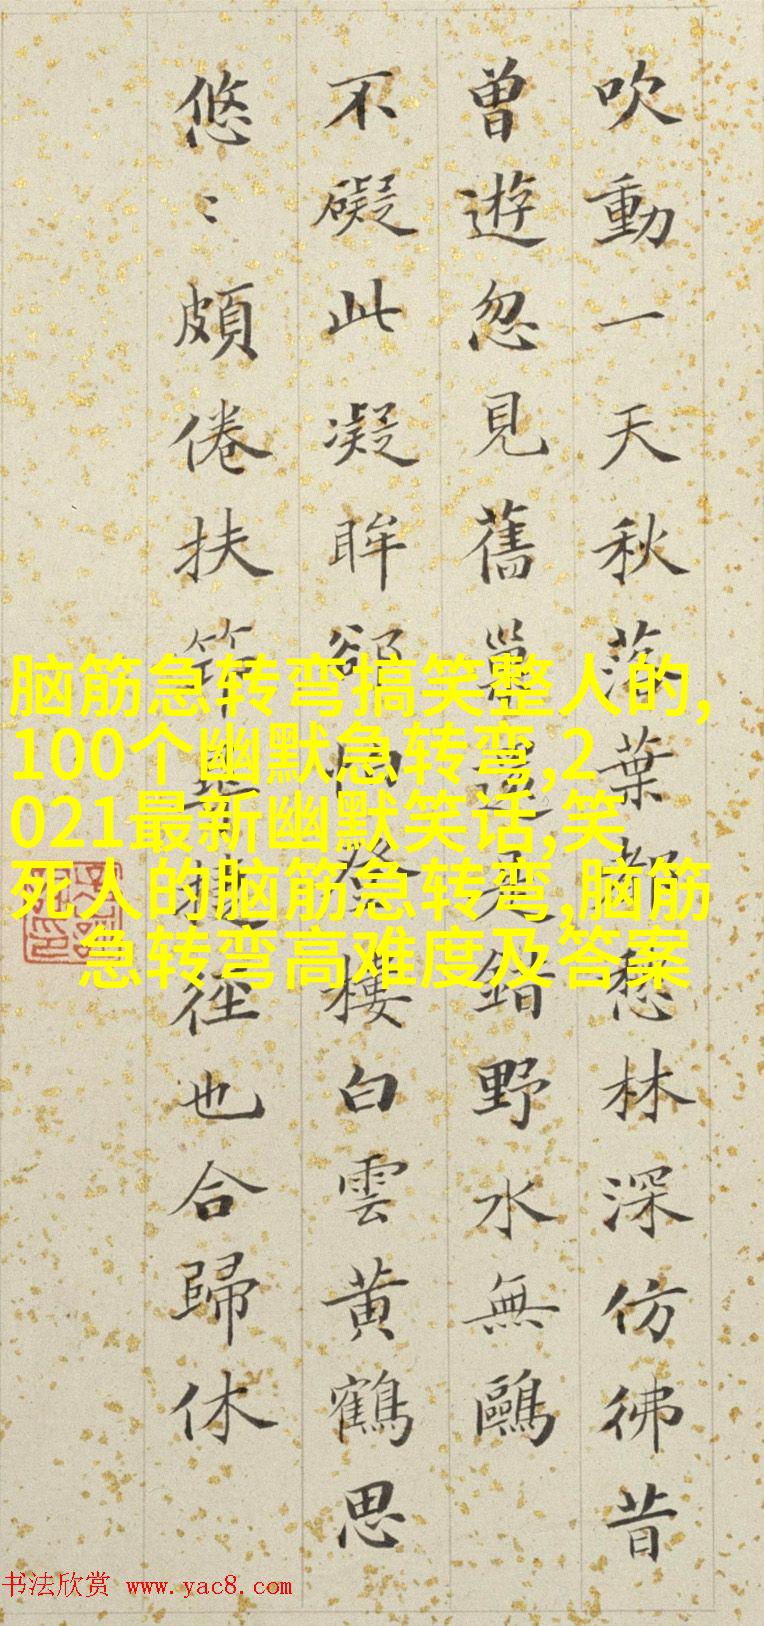 吹動一天秋落葉都愁林深仿彿昔
曾遊忽見舊巢還是錯野水無鷗
不礙此凝眸向登樓白雲黃鶴思
悠〻頗倦扶筇捷徑也合歸休
脑筋急转弯搞笑整人的,
100个幽默急转弯,2
021最新幽默笑话,笑
死人的脑筋急转弯,脑筋
急转弯高难度及答案
书法欣赏 www.yac8.com